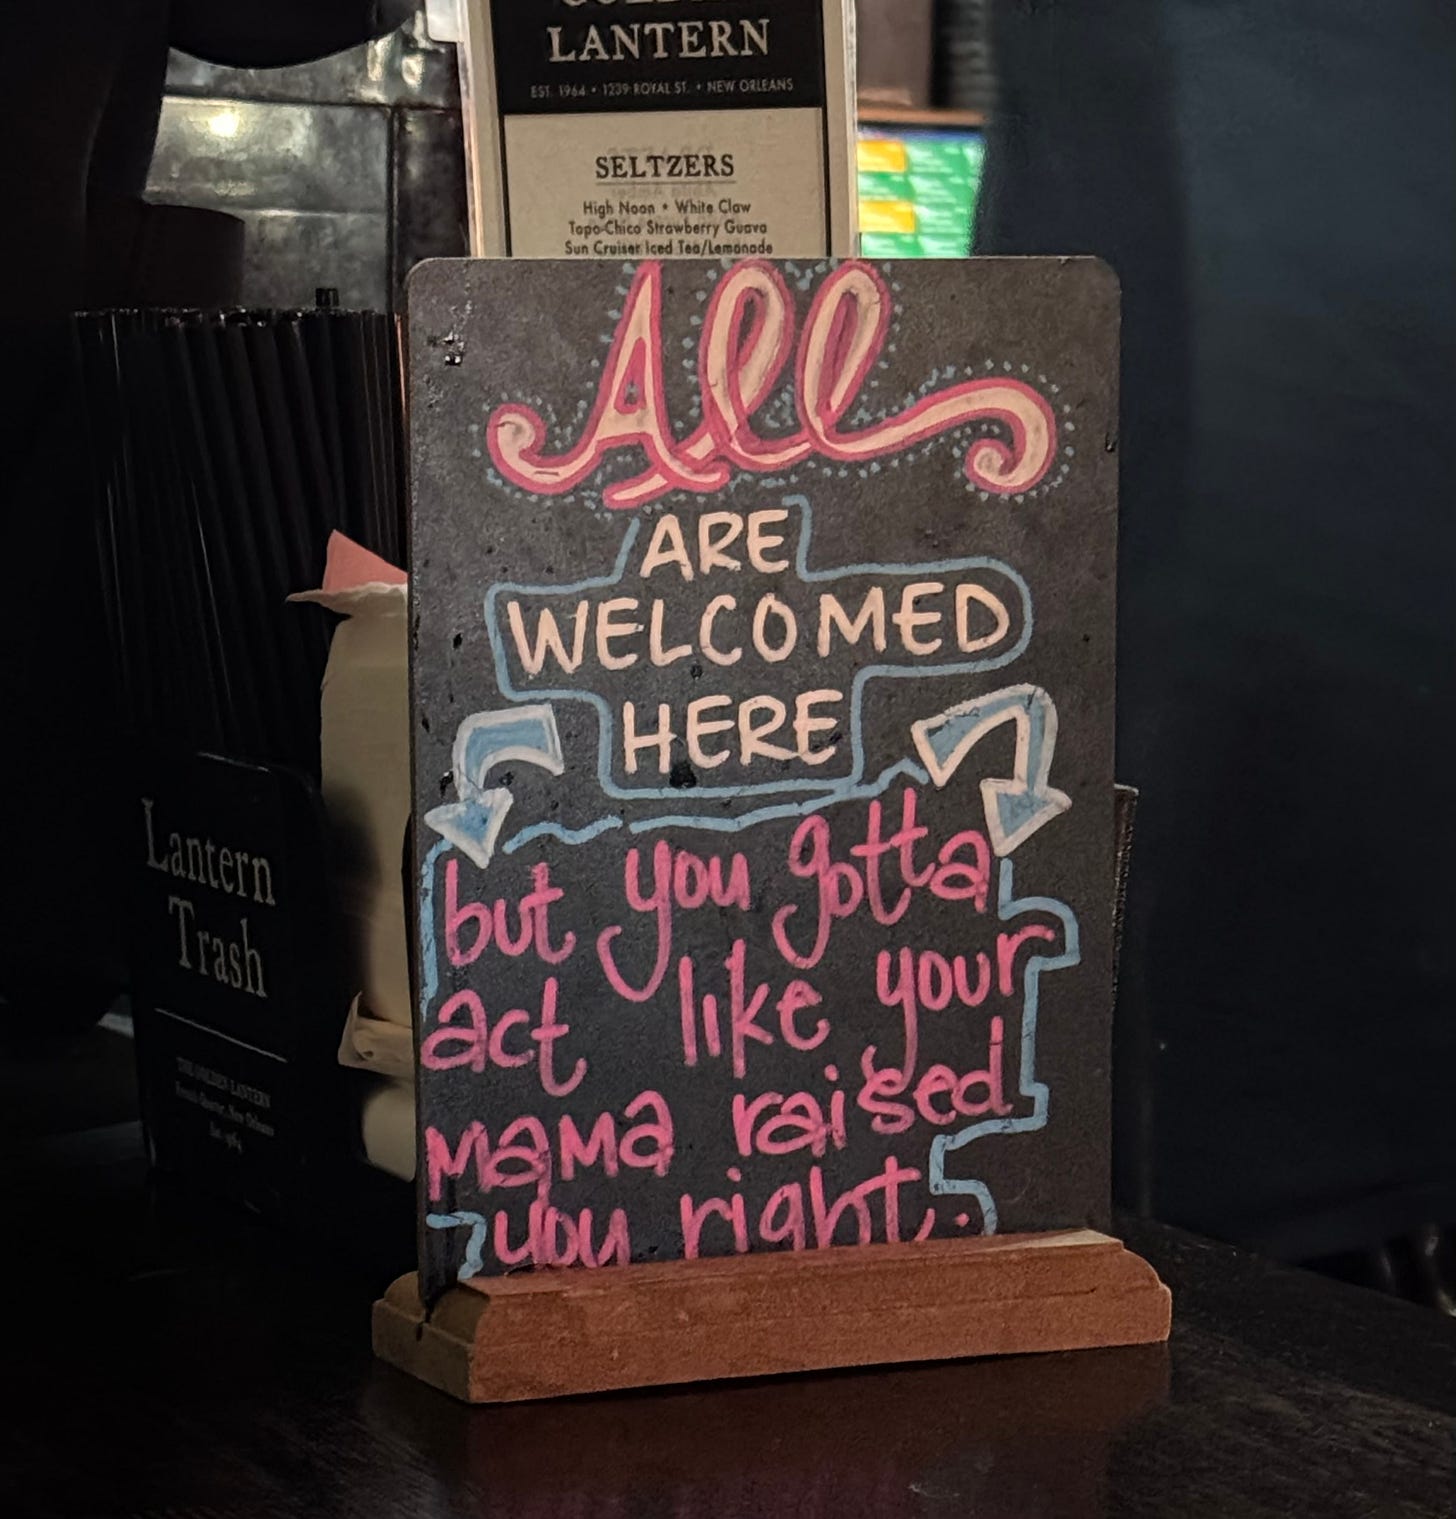 LANTERN
EST. 1964 • 1239 ROYAL ST. • NEW ORLEANS
SELTZERS
High Noon • White Claw
Topo-Chico Strawberry Guava
Sun Cruiser Iced Tea/Lemonade
All
ARE
WELCOMED
HERE
but you gotta
act like your
mama raised
you right.
Lantern
Trash
THE GOLDEN LANTERN
French Quarter, New Orleans
Est. 1964